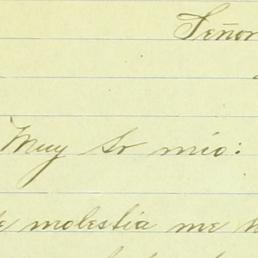 Señor
Muy Sr mio:
molestia me